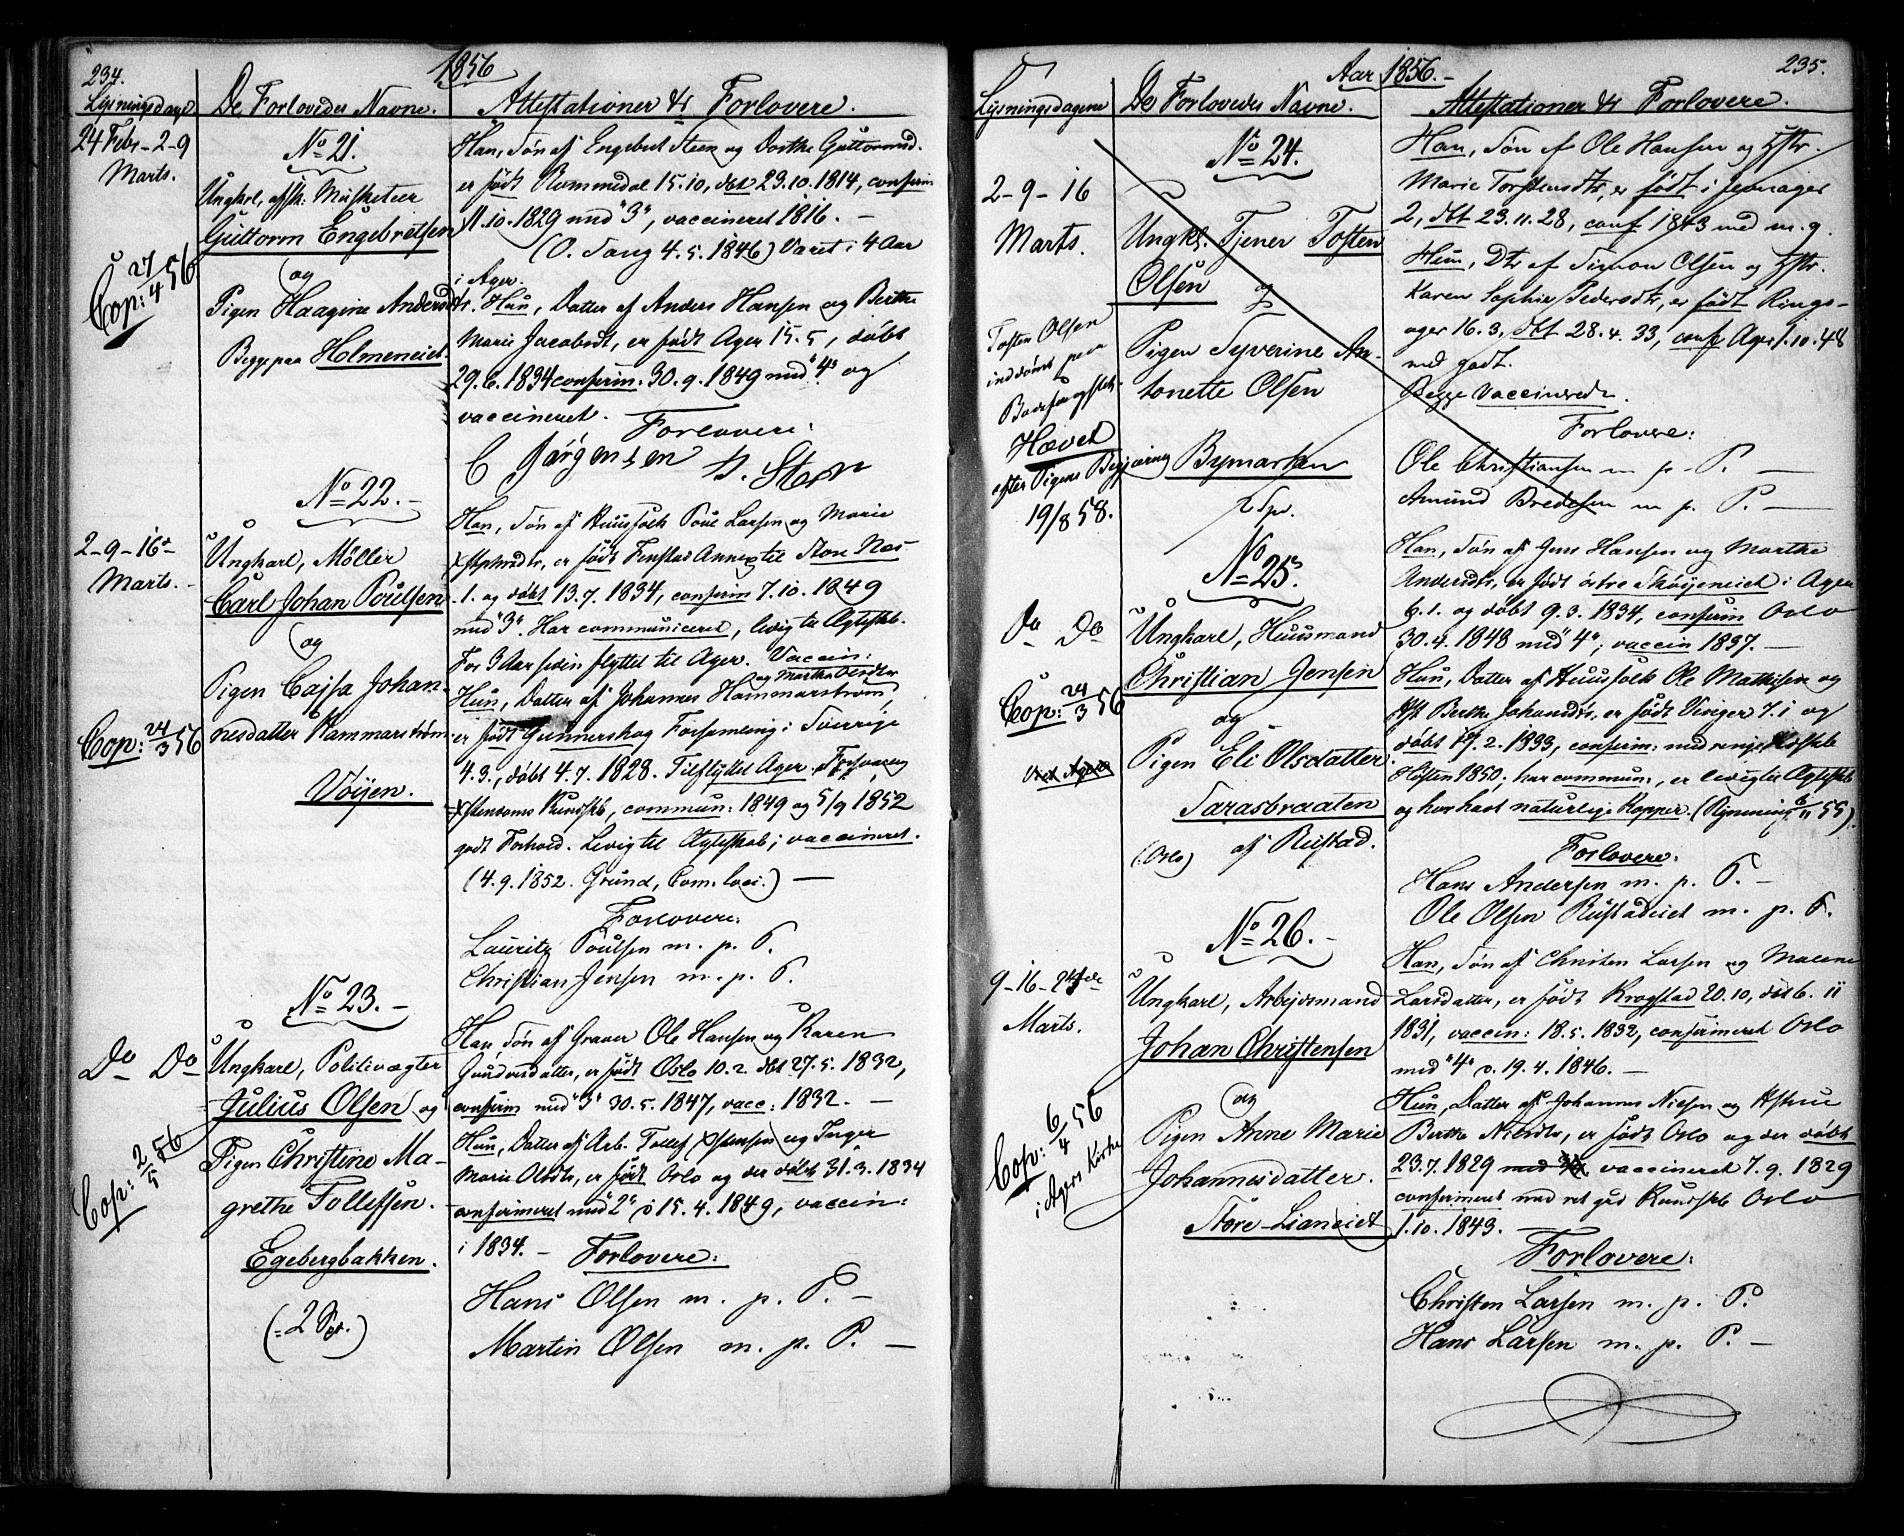 234.
1856
Lysningsdage
De Forlovedes Navne.
Attestationer & Forlovere.
24 Febr - 2 - 9
Marts.
No 21.
Ungkarl, afsk: Musketeer
Guttorm Engebretsen
og
Pigen Haagine Andersdtr.
Begge paa Holmeneiet.
Cop: 27/4 56
Han, Søn af Engebret Steen og Dorthe Guttormsd.
er født Rommedal 15.10, døbt 23.10.1814, confirm
11.10.1829 med "3", vaccineret 1816. —
(O. Tang 4.5.1846) Været i 4 Aar
i Ager.
Hun, Datter af Anders Hansen og Berthe
Marie Jacobsdt, er født Ager 15.5, døbt
29.6.1834 confirm: 30.9.1849 med "4" og
vaccineret.
Forlovere:
C Jørgensen
No 22. -
2 - 9 - 16
Marts. -
Ungkarl, Møller
Carl Johan Poulsen
og
Pigen Cajsa Johan-
nesdatter Hammarstrøm
Vøijen.
Cop: 24/3 56
Han, Søn af Huusfolk Poul Larsen og Marie
er født Fenstad Annex til Store Næs
1. og døbt 13.7.1834, confirm 7.10.1849
med "3". Har communiceret, ledig til Ægteskb.
For 3 Aar siden flyttet til Ager. Vaccin:
og Martha
Hun, Datter af Johannes Hammarstrøm
er født Gunnerskog Forsamling i Sverrige
4.3., døbt 4.7.1828. Tilflyttet Ager,
Xstendoms Kundskb, commun: 1849 og 5/9 1852
godt Forhold. Ledig til Ægteskab; vaccineret.
(4.9.1852. Grund, Com. loci.) —
Forlovere:
Lauritz Poulsen m. p. P.
Christian Jensen m. p. P.
No 23. -
Do Do
Ungkarl, Politivægter
Julius Olsen og
Pigen Christine Ma-
grethe Tollefsen.
Egebergbakken.
(2 Spd.)
Cop: 2/5 56
Han, Søn af Graver Ole Hansen og Karen
er født Oslo 10.2. døbt 27.5.1832,
confirm med "3" 30.5.1847, vacc: 1832. —
Hun, Datter af Arb. Tollef Xstensen og Inger
Marie Olsdtr, er født Oslo og der døbt 31.3.1834
confirmeret med "2" 15.4.1849, vaccin:
i 1834. -
Forlovere:
Hans Olsen m. p. P. -
Martin Olsen m. p. P. —
Aar 1856. -
235.
Lysningsdagene
De Forlovedes Navne.
Attestationer & Forlovere.
No 24.
2 - 9 - 16
Marts.
Ungkl. Tjener Tosten
Olsen og
Pigen Syverine An-
tonette Olsen
Bymarken
Tosten Olsen
inddømt paa
Hævet
efter Pigens Begjæring
19/8 58.
Han, Søn af Ole Hansen og Hstr.
Marie Torstensdtr, er født i Jevnager
2, døbt 23.11.28, conf 1843 med m. g.
Hun, Dtr af Simon Olsen og Hstr.
Karen Sophie Pedersdtr, er født Rings-
ager 16.3, døbt 28.4.33, conf Ager 1.10.48
med godt.
Begge vaccinerede.
Forlovere:
Ole Christiansen m p. P. —
Amund Bredesen m p. P. —
No 25.
Do Do
Ungkarl, Huusmand
Christian Jensen
og
Pigen Eli Olsdatter
Tarasbraaten
(Oslo) af Rustad.
Cop: 24/3 56
Han, Søn af Jens Hansen og Marthe
Andersdtr, er født østre Skøijeneiet i Ager
6.1. og døbt 9.3.1834, confirm Oslo
30.4.1848 med "4"; vaccin 1837. —
Hun, Datter af Huusfolk Ole Mathisen og
Berthe Johansdtr, er født Vinger 7.1 og
døbt 17.2.1833, confirm: med
Høsten 1850; har commun:, er ledig til Ægteskb
og har havt naturlige Kopper.
Forlovere:
Hans Andersen m. p. P. -
Ole Olsen Rustadeiet m. p. P.
No 26. -
9 - 16 - 24de
Marts.
Ungkarl, Arbejdsmand
Johan Christensen
og
Pigen Anne Marie
Johannesdatter.
Store-Lianeiet
Cop: 6/4 56
i Agers Kirke
Han, Søn af Christen Larsen og Malene
Larsdatter, er født Krogstad 20.10, døbt 6.11
1831, vaccin: 18.5.1832, confirmeret Oslo
med "4" 19.4.1846. —
Hun, Datter af Johannes Nielsen og Hstrue
Berthe Nilsdtr, er født Oslo og der døbt
23.7.1829 vaccineret 7.9.1829
confirmeret med ret god Kundskb Oslo
1.10.1843.
Forlovere:
Christen Larsen m. p. P.
Hans Larsen m. p. P. —